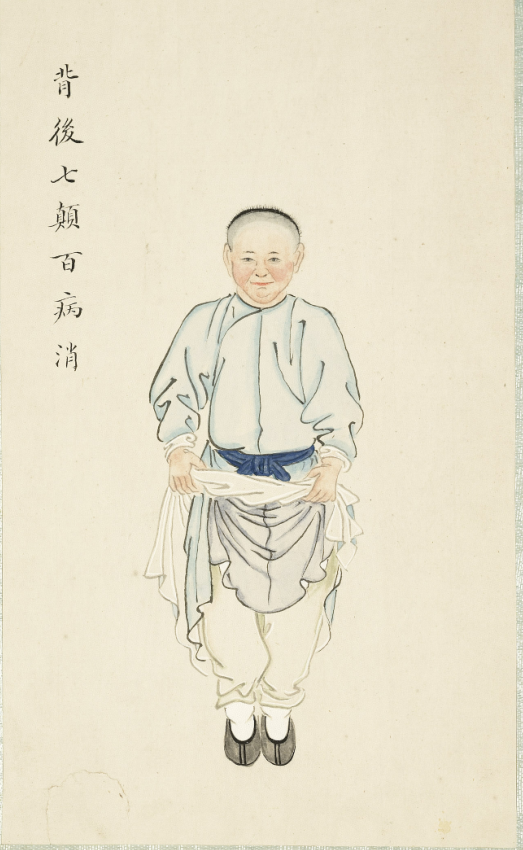 背後七顛百病消